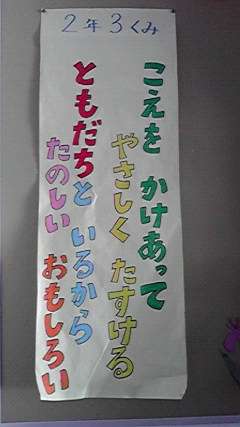 2年3くみ
こえを かけあって
やさしく たすける
ともだちと いるから
たのしい おもしろい